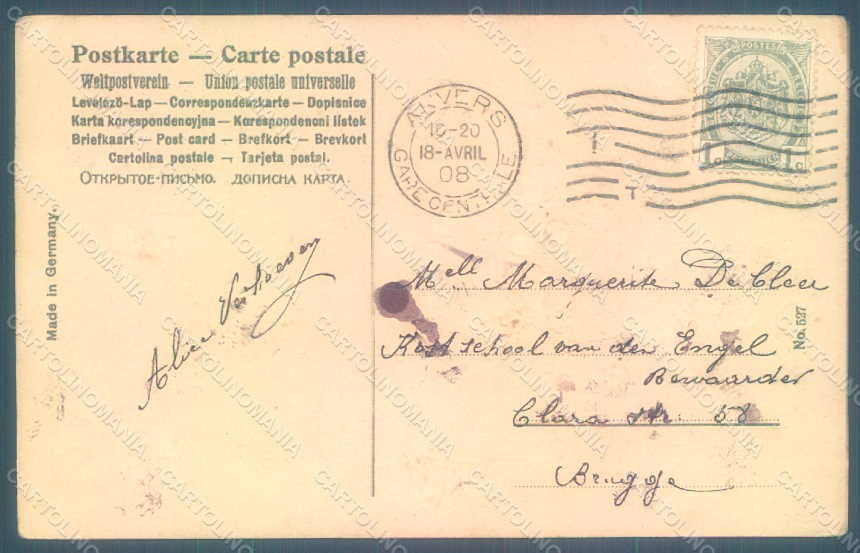 Postkarte — Carte postale
Weltpostverein — Union postale universelle
Levelező-Lap — Correspondenzkarte — Dopisnice
Karta korespondencyjna — Korespondencni listek
Briefkaart — Post card — Brefkort — Brevkort
Cartolina postale — Tarjeta postal.
ОТКРЫТОЕ ПИСЬМО. ДОПИСНА КАРТА.
Made in Germany.
Alice
ANVERS
18-AVRIL
08
GARE CENTRALE
T
T
POSTES
1 c
Mell Marguerite De Cleer
Kostschool van den Engel
Bewaarder
Clara str. 58
Brugge
No. 527
CARTOLINOMANIA